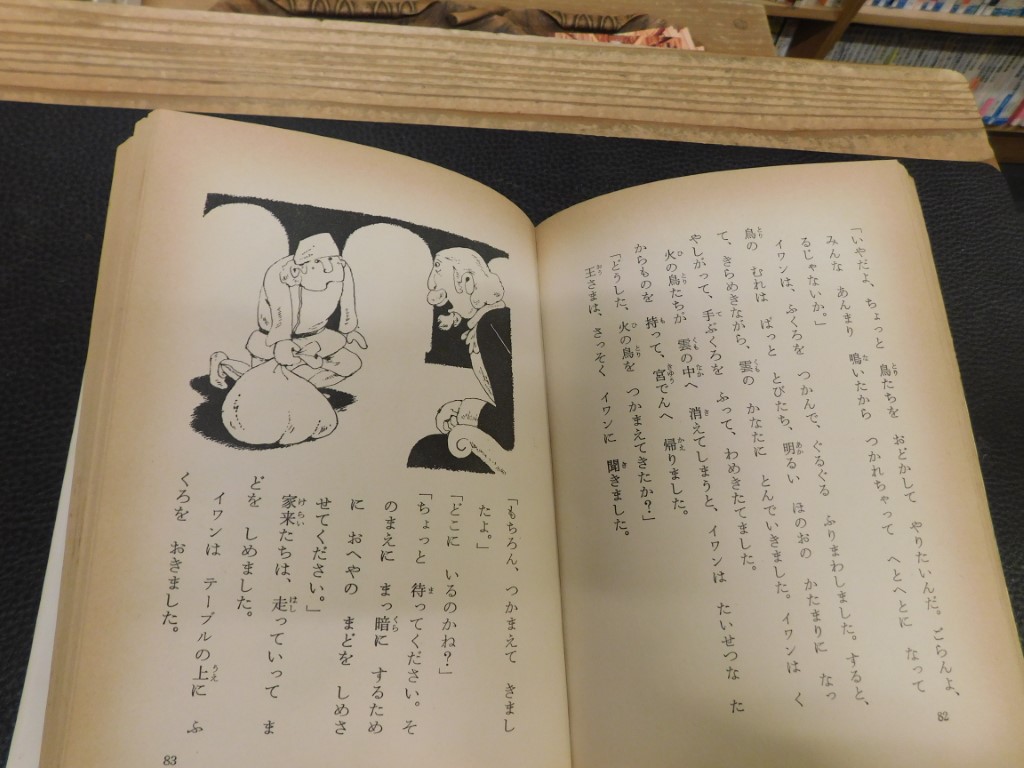 「いやだよ、ちょっと 鳥たちを おどかして やりたいんだ。ごらんよ、
みんな あんまり 鳴いたから つかれちゃって へとへとに なって
るじゃないか。」
イワンは、ふくろを つかんで、ぐるぐる ふりまわしました。すると、
鳥の むれは ぱっと とびたち、明るい ほのおの かたまりに なっ
て、きらめきながら、雲の かなたに とんでいきました。イワンは く
やしがって、手ぶくろを ふって、わめきたてました。
火の鳥たちが 雲の中へ 消えてしまうと、イワンは たいせつな た
からものを 持って、宮でんへ 帰りました。
「どうした、火の鳥を つかまえてきたか?」
王さまは、さっそく イワンに 聞きました。
82
「もちろん、つかまえて きまし
たよ。」
「どこに いるのかね?」
「ちょっと 待ってください。そ
のまえに まっ暗に するため
に おへやの まどを しめさ
せてください。」
家来たちは、走っていって ま
どを しめました。
イワンは テーブルの上に ふ
くろを おきました。
83